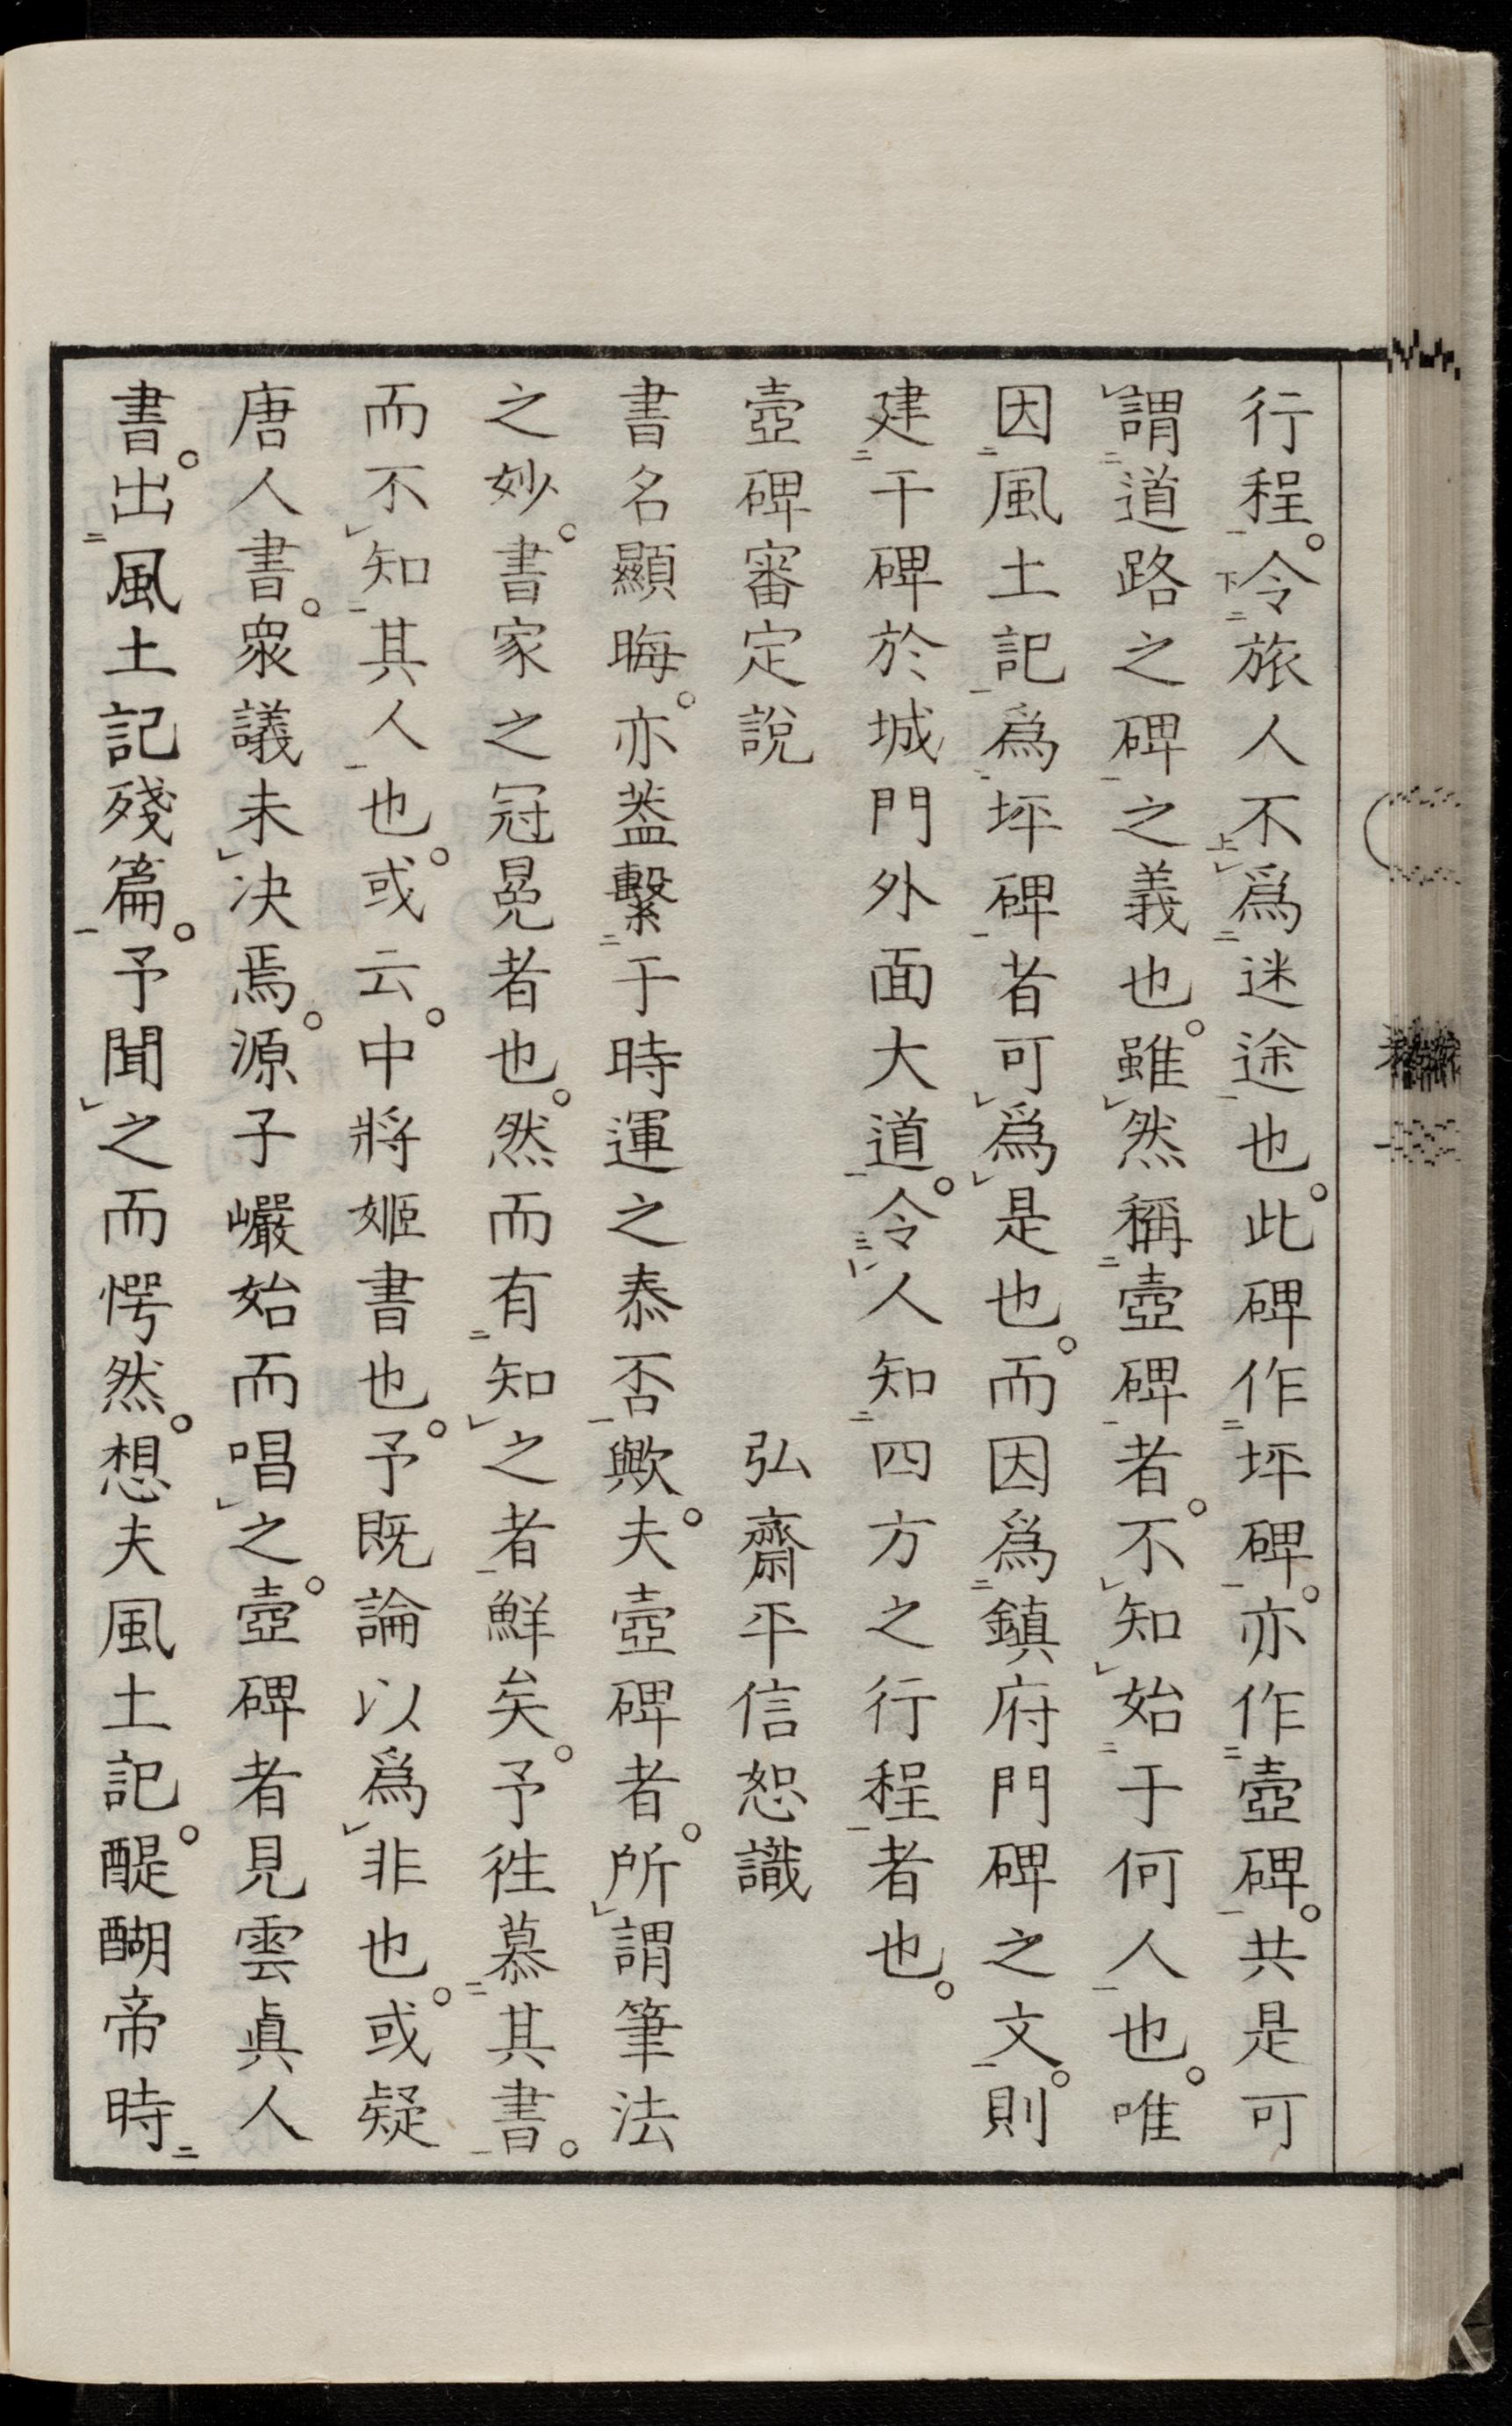 行程。令旅人不爲迷途也。此碑作坪碑。亦作壺碑。共是可
謂道路之碑之義也。雖然稱壺碑者。不知始于何人也。唯
因風土記爲坪碑者可爲是也。而因爲鎮府門碑之文。則
建于碑於城門外面大道。令人知四方之行程者也。
壺碑審定說　弘齋平信恕識
書名顯晦。亦葢繫于時運之泰否歟。夫壺碑者。所謂筆法
之妙。書家之冠冕者也。然而有知之者鮮矣。予徃慕其書。
而不知其人也。或云。中將姬書也。予既論以爲非也。或疑
唐人書。衆議未决焉。源子巖始而唱之。壺碑者見雲眞人
書。出風土記殘篇。予聞之而愕然。想夫風土記。醍醐帝時